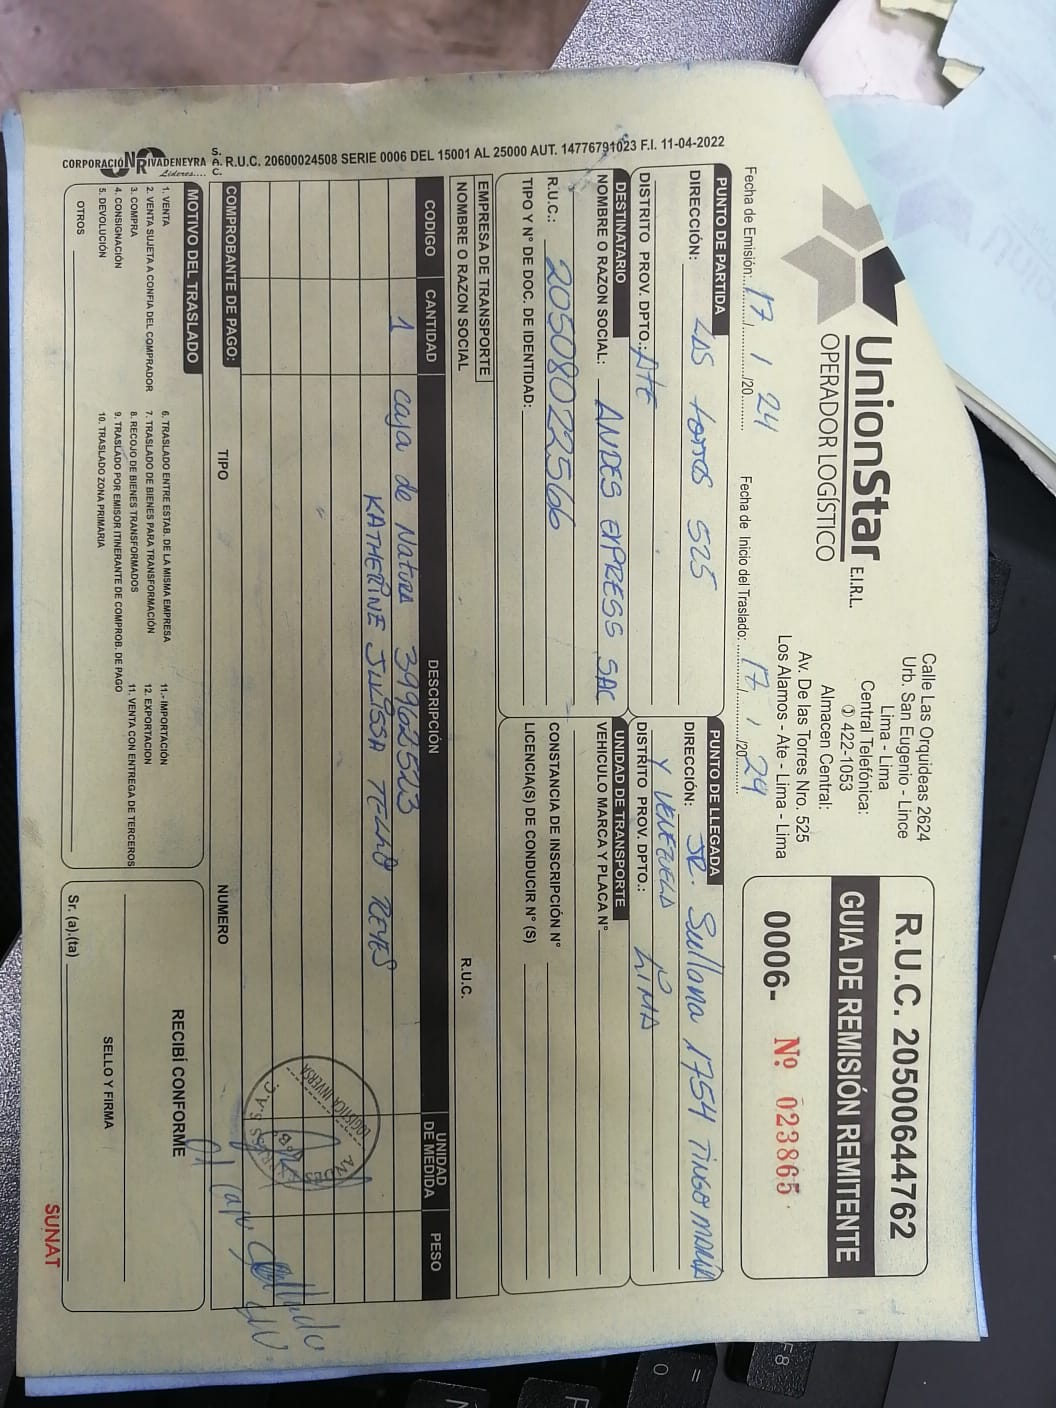 UnionStar E.I.R.L.
OPERADOR LOGÍSTICO
Calle Las Orquideas 2624
Urb. San Eugenio - Lince
Lima - Lima
Central Telefónica:
✆ 422-1053
Almacen Central:
Av. De las Torres Nro. 525
Los Alamos - Ate - Lima - Lima
R.U.C. 20500644762
GUIA DE REMISIÓN REMITENTE
0006- Nº 023865
Fecha de Emisión: 17 / 1 /20 24
Fecha de Inicio del Traslado: 17 / 1 /20 24
PUNTO DE PARTIDA
DIRECCIÓN: LAS torres 525
DISTRITO PROV. DPTO.: Ate
PUNTO DE LLEGADA
DIRECCIÓN: JR. Sullana 1754 TINGO MARIA
DISTRITO PROV. DPTO.: Y VENEZUELA LIMA
DESTINATARIO
NOMBRE O RAZON SOCIAL: ANDES EXPRESS SAC
R.U.C.: 20508022566
TIPO Y N° DE DOC. DE IDENTIDAD:
UNIDAD DE TRANSPORTE
VEHICULO MARCA Y PLACA N°
CONSTANCIA DE INSCRIPCIÓN N°
LICENCIA(S) DE CONDUCIR N° (S)
EMPRESA DE TRANSPORTE
NOMBRE O RAZON SOCIAL R.U.C.
CODIGO CANTIDAD DESCRIPCIÓN UNIDAD DE MEDIDA PESO
1 caja de Natura 39962523
KATHERINE JULISSA TELLO REYES
LOGISTICA INVERSA
COMPROBANTE DE PAGO: TIPO NUMERO
MOTIVO DEL TRASLADO
1. VENTA
2. VENTA SUJETA A CONFIA DEL COMPRADOR
3. COMPRA
4. CONSIGNACIÓN
5. DEVOLUCIÓN
6. TRASLADO ENTRE ESTAB. DE LA MISMA EMPRESA
7. TRASLADO DE BIENES PARA TRANSFORMACIÓN
8. RECOJO DE BIENES TRANSFORMADOS
9. TRASLADO POR EMISOR ITINERANTE DE COMPROB. DE PAGO
10. TRASLADO ZONA PRIMARIA
11.- IMPORTACIÓN
12. EXPORTACION
11. VENTA CON ENTREGA DE TERCEROS
OTROS
RECIBÍ CONFORME
SELLO Y FIRMA
Sr. (a).(ta)
SUNAT
CORPORACIÓN RIVADENEYRA S.A.C. R.U.C. 20600024508 SERIE 0006 DEL 15001 AL 25000 AUT. 14776791023 F.I. 11-04-2022
Líderes....